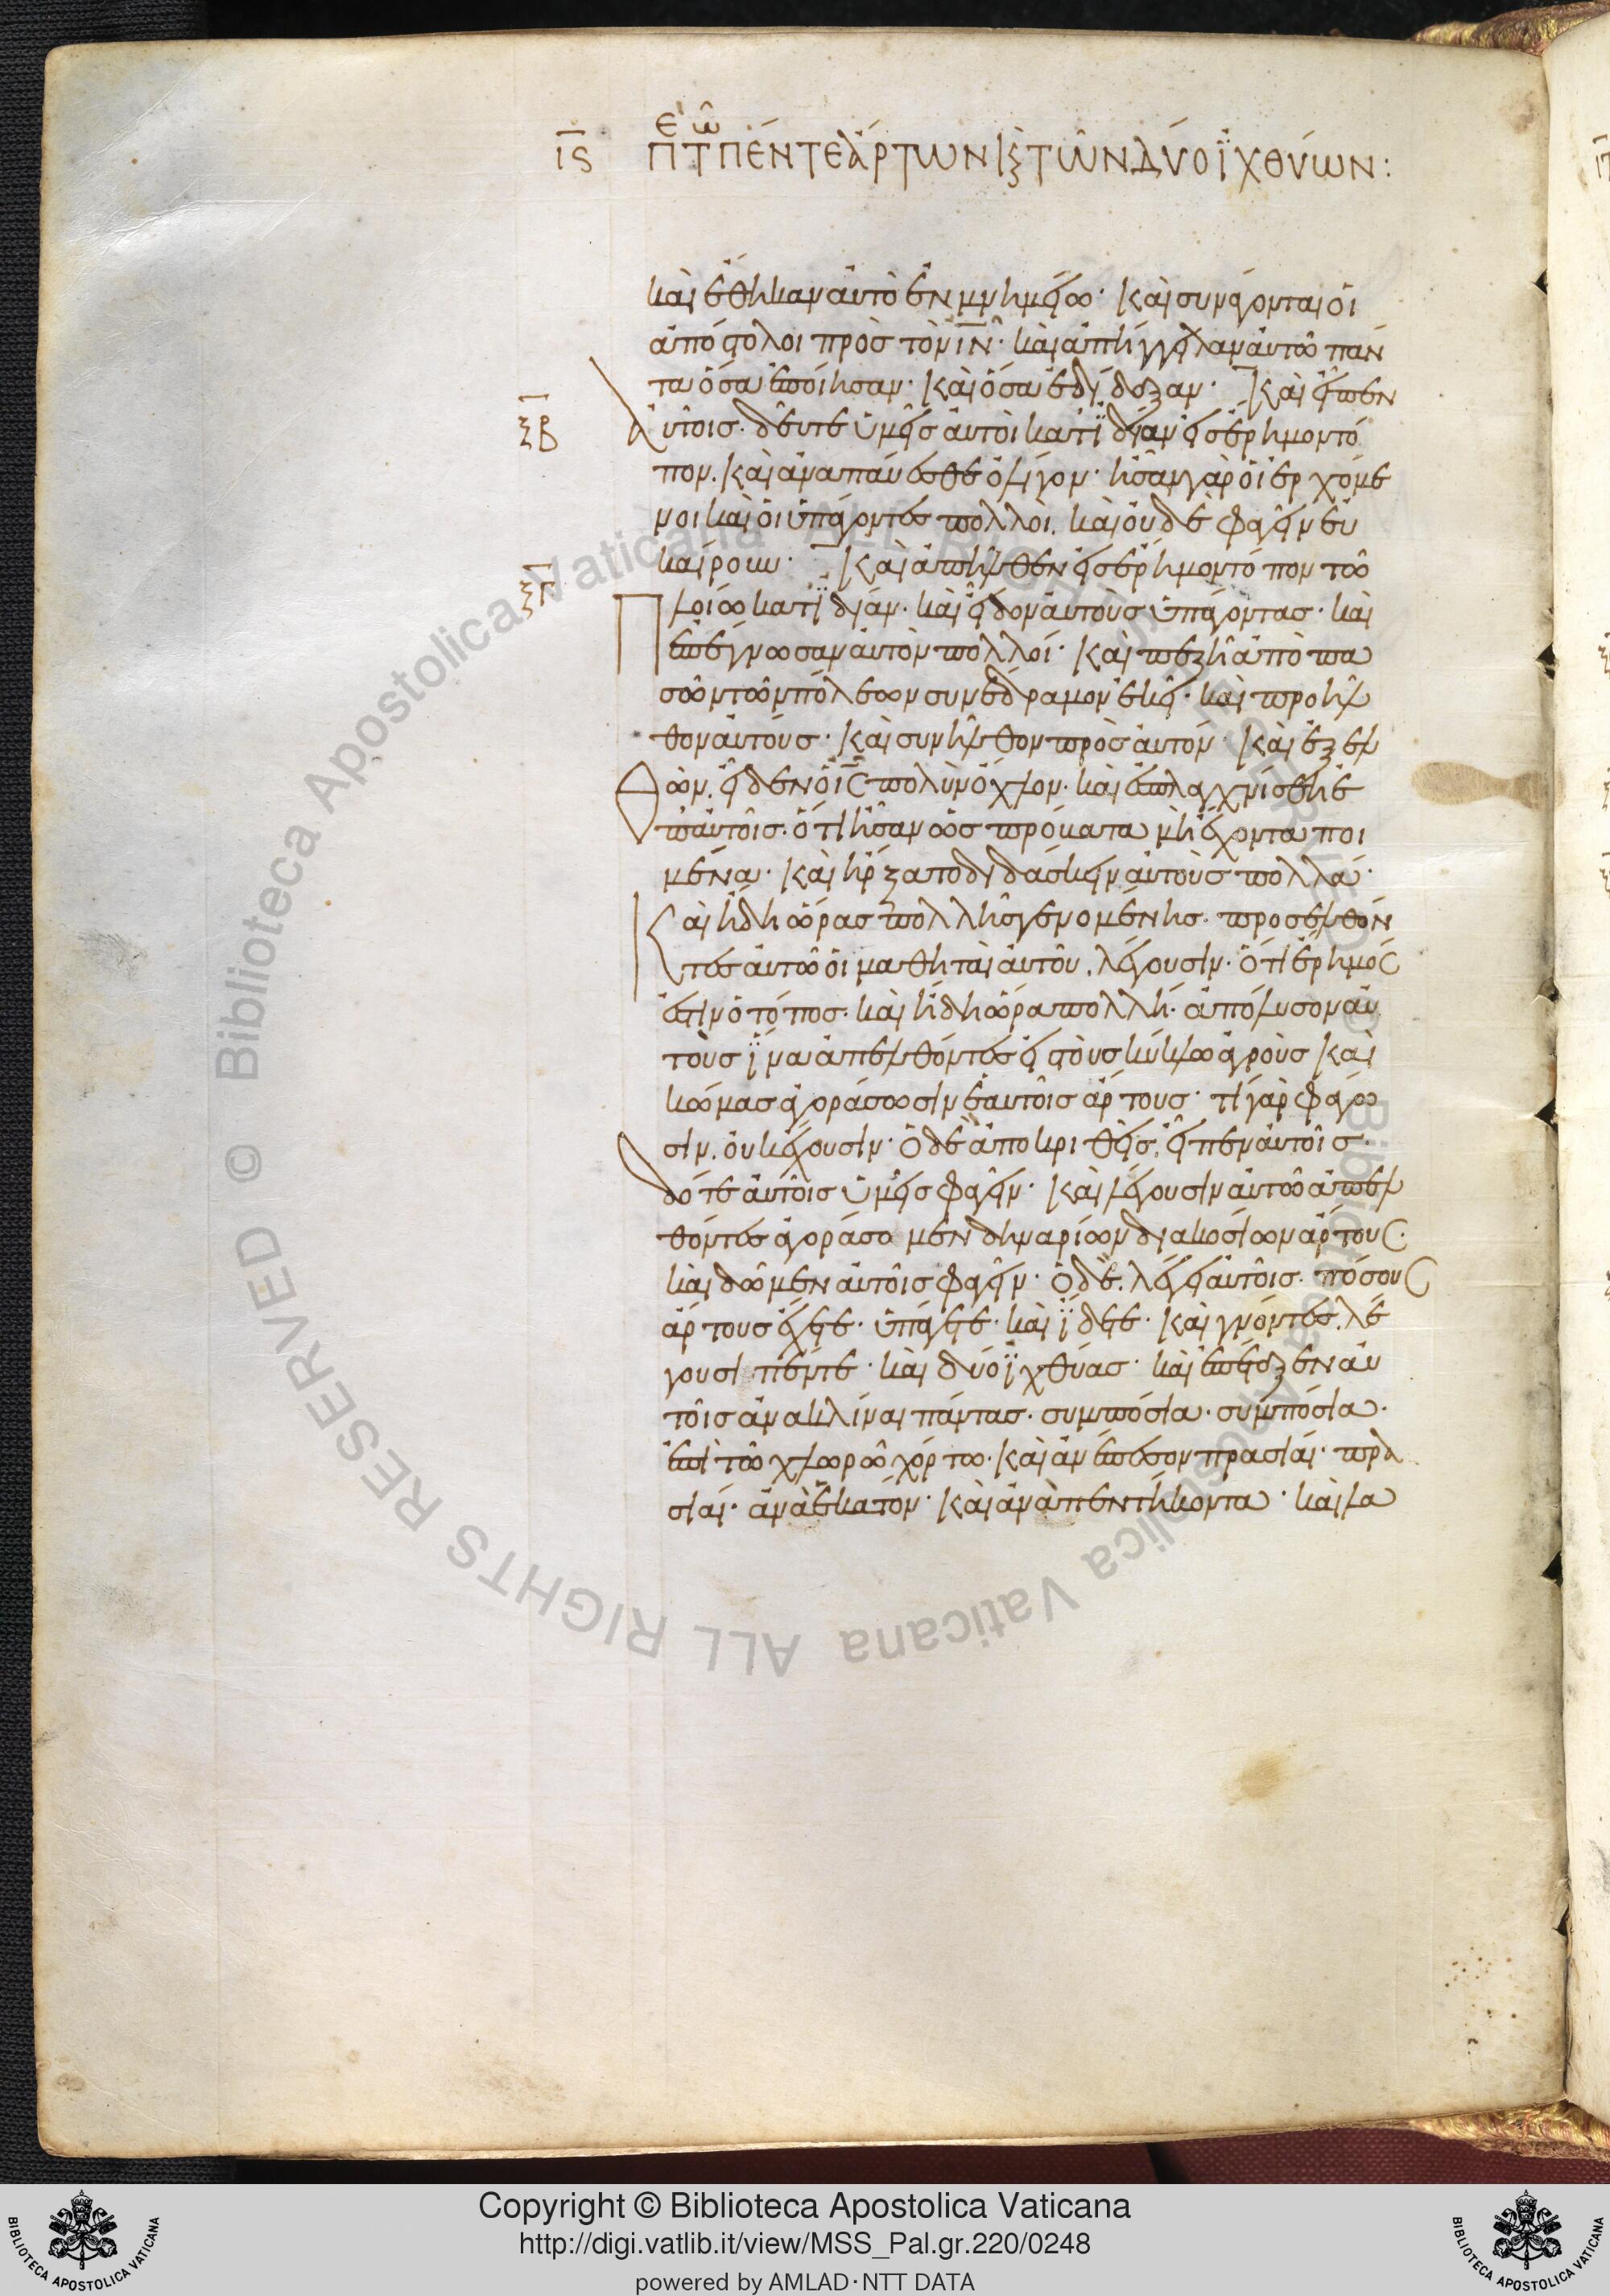 ις πε τῶ πέντε ἄρτων κ̀ τῶν δύο ϊχθύων:
καὶ ἔθηκαν αὐτὸ ἐν μνημείω· καὶ συνάγονται οἱ
ἀπόστολοι πρὸς τὸν ιν· καὶ ἀπήγγειλαν αὐτῶ πάν
τα ὅσα ἐποίησαν· καὶ ὅσα ἐδίδαξαν· καὶ εἶπεν
ξβ αὐτοῖς· δεῦτε ὑμεῖς αὐτοὶ κατϊδίαν εἰς ἔρημον τό
πον· καὶ ἀναπαύεσθε ὀλίγον· ἦσαν γὰρ οἱ ἐρχόμε
νοι καὶ οἱ ὑπάγοντες πολλοὶ· καὶ οὐδὲ φαγεῖν εὐ
καίρουν· καὶ ἀπῆλθεν εἰς ἔρημον τόπον τῶ
ξγ πλοίω κατϊδίαν· καὶ εἶδον αὐτοὺς ὑπάγοντας· καὶ
ἐπέγνωσαν αὐτὸν πολλοί· καὶ πεζῆ ἀπὸ πα
σῶν τῶν πόλεων συνέδραμον ἐκεῖ· καὶ προῆλ
θον αὐτούς· καὶ συνῆλθον πρὸς αὐτόν· καὶ ἐξελ
θὼν· εἶδεν ὁ ις πολὺν ὄχλον· καὶ ἐσπλαχνίσθη ἐ
π' αὐτοῖς· ὅτι ἦσαν ὡς πρόβατα μὴ ἔχοντα ποι
μένα· καὶ ἤρξατο διδάσκειν αὐτοὺς πολλά·
Καὶ ἤδη ὥρας πολλῆς γενομένης· προσελθόν
τες αὐτῶ οἱ μαθηταὶ αὐτοῦ· λέγουσιν· ὅτι ἔρημός
ἐστιν ὁ τόπος· καὶ ἤδη ὥρα πολλή· ἀπόλυσον αὐ
τοὺς ϊνα ἀπελθόντες εἰς τοὺς κύκλω ἀγροὺς καὶ
κώμας ἀγοράσωσιν ἑαυτοῖς ἄρτους· τί γὰρ φάγω
σιν· οὐκ ἔχουσιν· ὁ δὲ ἀποκριθεὶς· εἶπεν αὐτοῖς·
δότε αὐτοῖς ὑμεῖς φαγεῖν· καὶ λέγουσιν αὐτῶ ἀπελ
θόντες ἀγοράσομεν δηναρίων διακοσίων ἄρτους·
καὶ δῶμεν αὐτοῖς φαγεῖν· ὁ δὲ· λέγει αὐτοῖς· πόσους
ἄρτους ἔχετε· ὑπάγετε· καὶ ϊδετε· καὶ γνόντες· λέ
γουσι πέντε· καὶ δύο ϊχθύας· καὶ ἐπέταξεν αὐ
τοῖς ἀνακλίναι πάντας· συμπόσια· συμπόσια·
ἐπὶ τῶ χλωρῶ χόρτω· καὶ ἀνέπεσον πρασιαί· πρα
σιαί· ἀνὰ ἑκατόν· καὶ ἀνὰ πεντήκοντα· καὶ λα
Copyright © Biblioteca Apostolica Vaticana
http://digi.vatlib.it/view/MSS_Pal.gr.220/0248
powered by AMLAD·NTT DATA
BIBLIOTECA APOSTOLICA VATICANA
BIBLIOTECA APOSTOLICA VATICANA
© Biblioteca Apostolica Vaticana ALL RIGHTS RESERVED
© Biblioteca Apostolica Vaticana ALL RIGHTS RESERVED